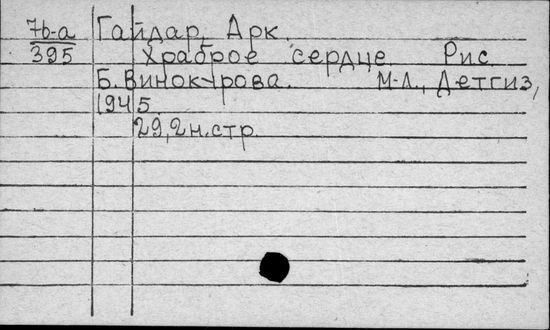 7b-a Гайдар, Арк.
395 Храброе сердце. Рис.
Б. Винокурова. М-Л., Детгиз,
1945.
29, 2 н. стр.